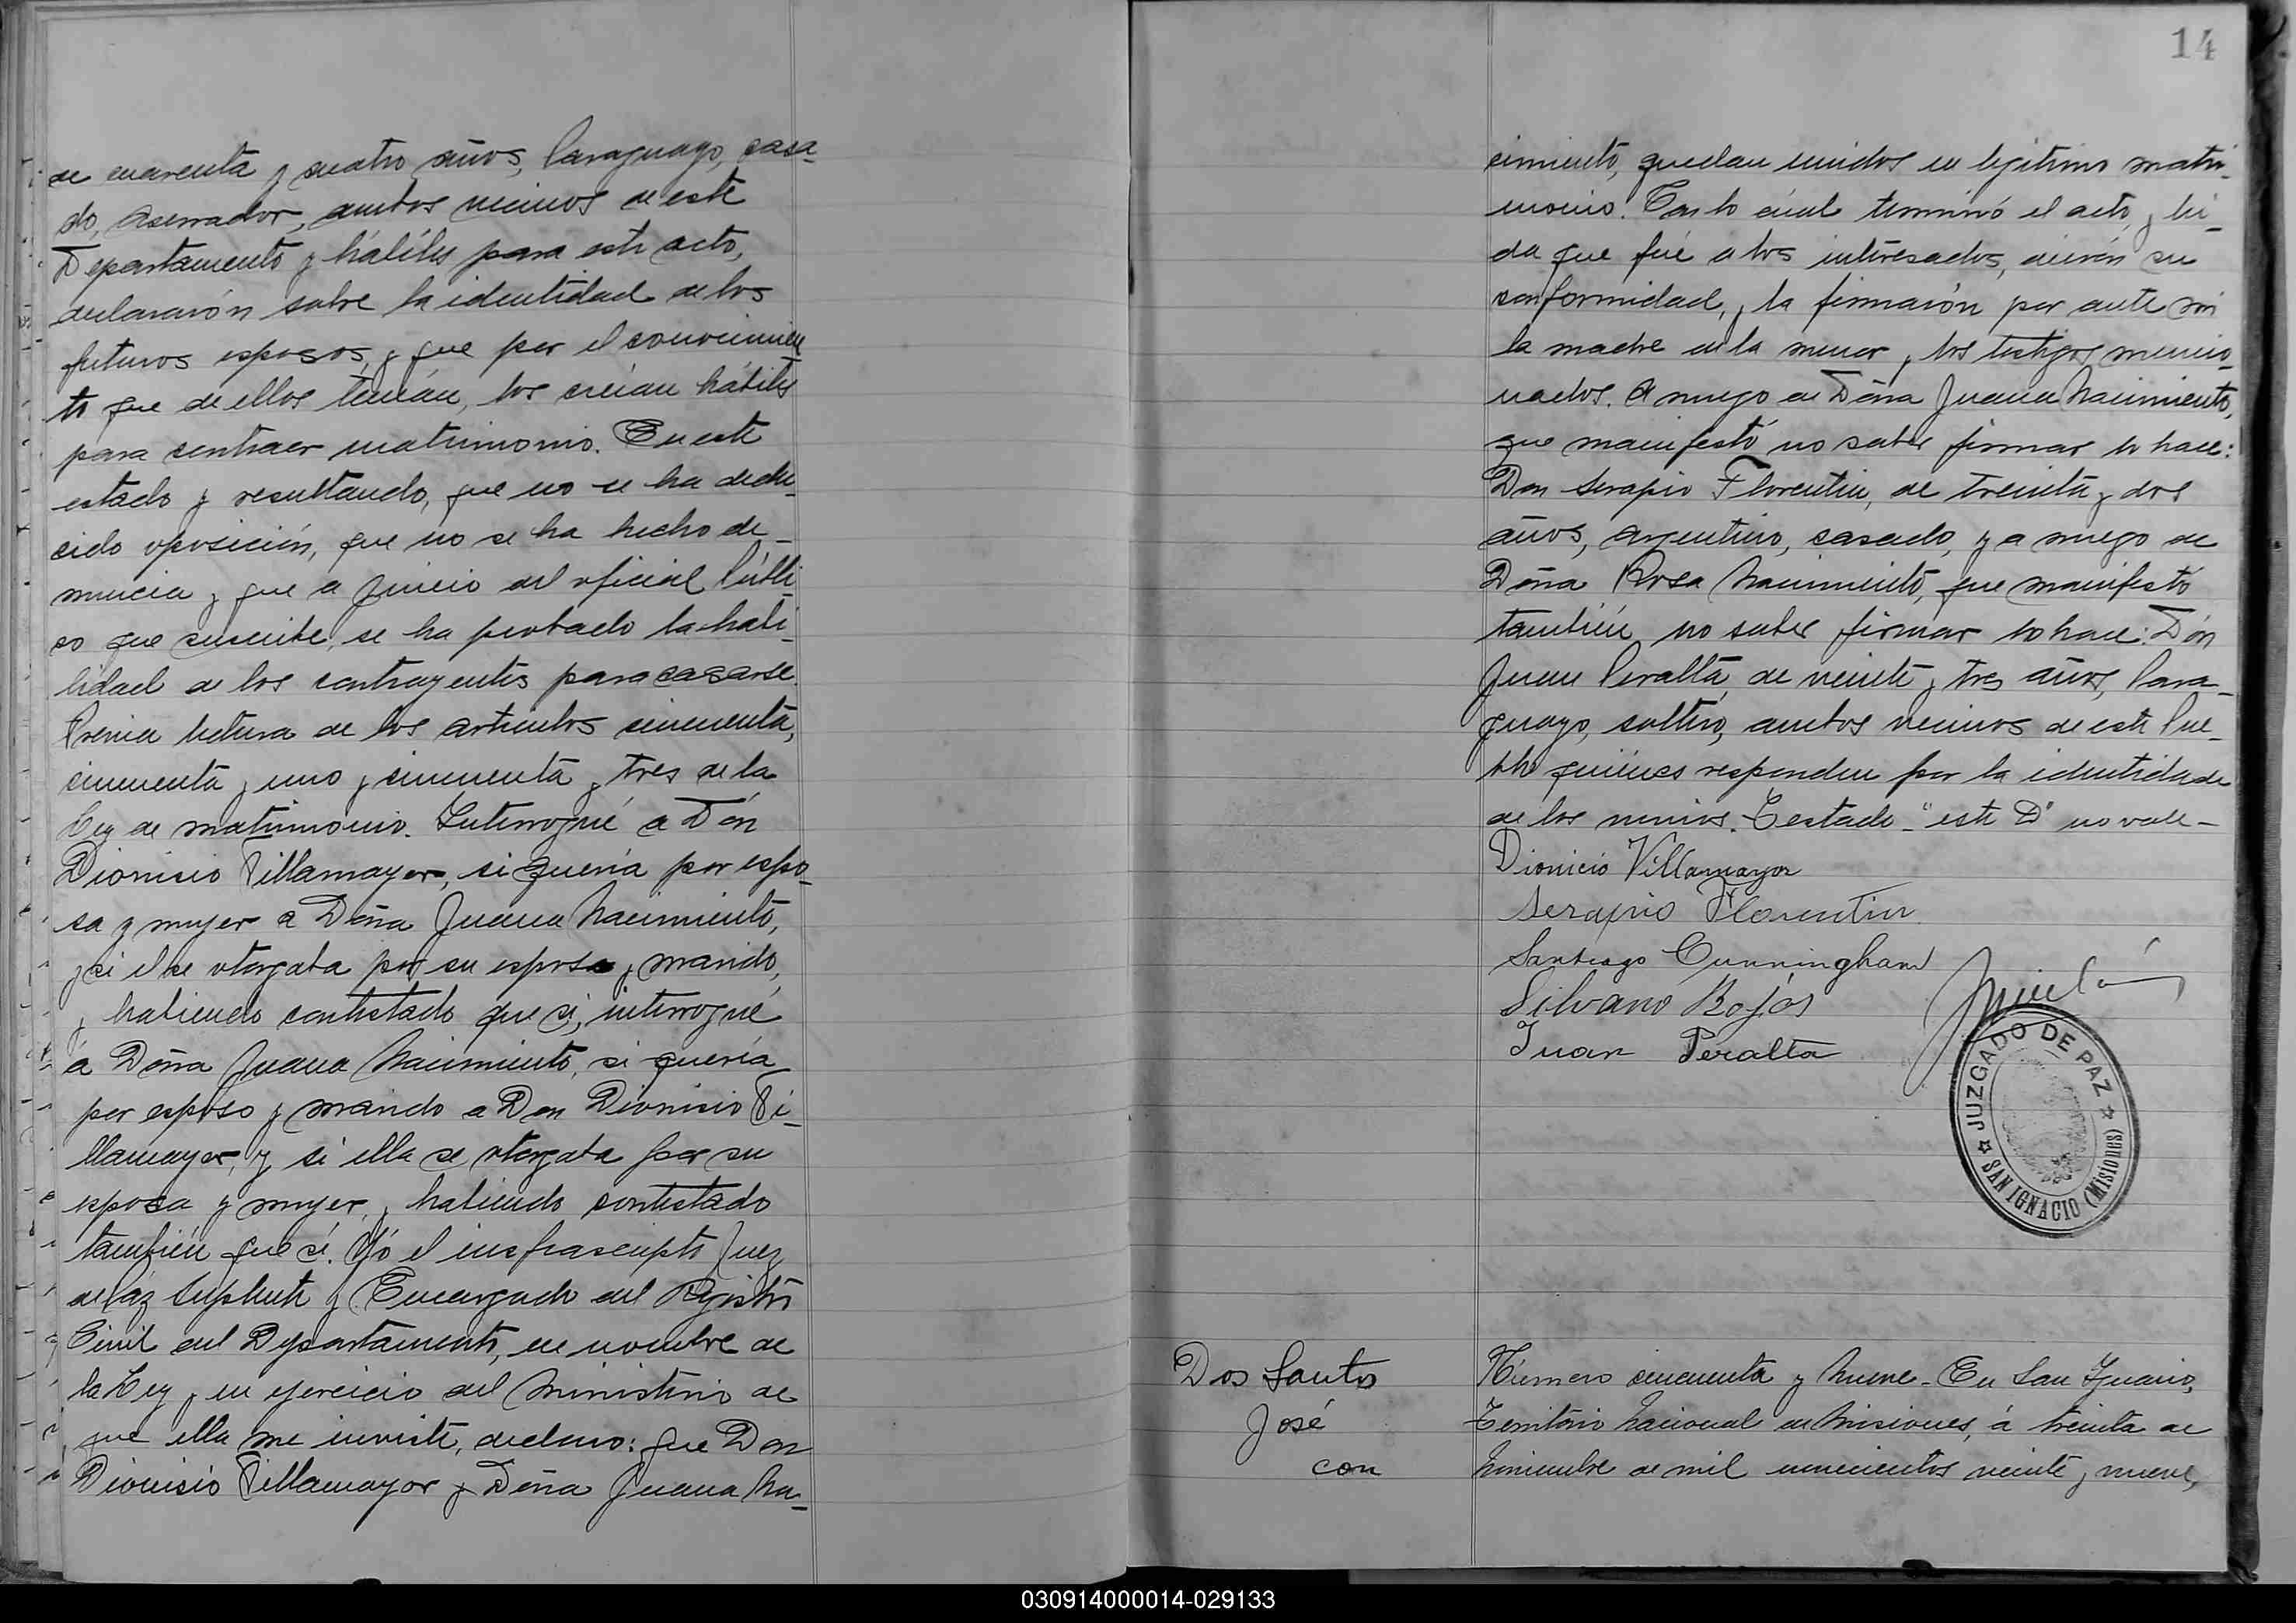 de cuarenta y cuatro años, Paraguayo, casa-
do, Aserrador, ambos vecinos de este
Departamento y hábiles para este acto,
declararón sobre la identidad de los
futuros esposos, y que por el conocimien
to que de ellos tenián, los creían hábiles
para contraer matrimonio. En este
estado y resultando, que no se ha dedu-
cido oposición, que no se ha hecho de-
nuncia y que a juicio del oficial Públi-
co que suscribe, se ha probado la habi-
lidad de los contrayentes para casarse.
Previa lectura de los articulos cincuenta,
cincuenta y uno y cincuenta y tres de la
Ley de matrimonio. Interrogué a Dón
Dionisio Villamayor, si quería por espo-
sa y mujer a Doña Juana Nacimiento,
y si el se otorgaba por su esposo y marido,
y habiendo contestado que si, interrogué
á Doña Juana Nacimiento, si quería
por esposo y marido a Don Dionisio Vi-
llamayor, y si ella se otorgaba por su
esposa y mujer, y habiendo contestado
también que sí. Yó el insfrascripto Juez
de Páz Suplente y Encargado del Registro
Civil del Departamento, en nombre de
la Ley y en ejercicio del Ministerio de
que ella me inviste, declaro: que Don
Dionisio Villamayor y Doña Juana Na-
14
cimiento, quedan unidos en legitimo matri-
monio. Con lo cúal terminó el acto, y leí-
da que fué a los intéresados, dierón su
conformidad, y la firmarón por ante mi
la madre de la menor y los testigos mencio-
nados. A ruego de Doña Juana Nacimiento,
que manifestó no saber firmar lo hace:
Don Serapio Florentin, de treinta y dos
años, argentino, casado, y a ruego de
Doña Rosa Nacimiento, que manifestó
también no saber firmar lo hace: Dón
Juan Peralta, de veinte y tres años, Para-
guayo, soltero, ambos vecinos de este Pue-
blo quiénes responden por la identidad de
de los mimos. Testado "este D" no vale-
Dionicio Villamayor
Serapio Florentin
Santiago Cunningham
Silvano Rojas
Juan Peralta
JUZGADO DE PAZ
SAN IGNACIO (Misiones)
Dos Santos
José
con
Número cincuenta y Nueve - En San Ignacio,
Território Nacional de Misiones, á treinta de
Noviembre de mil novecientos veinte y nueve,
030914000014-029133